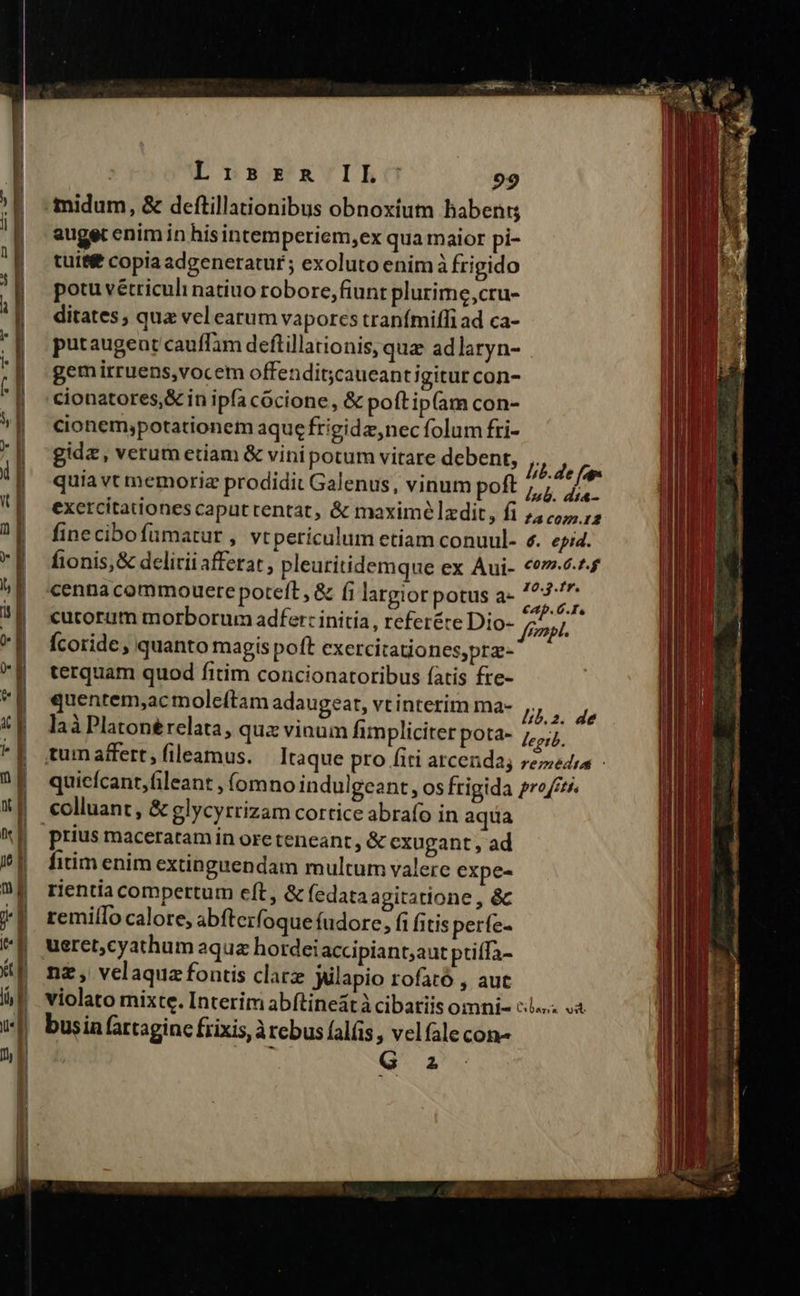 LIBER II. 99
midum, & deſtillationibus obnoxium habent;
auget enim in his intemperiem, ex qua maior pi-
tuitę copia adgeneratur; exoluto enim à frigido
potu vẽtriculi natiuo robore, fiunt plurimę, cru-
ditates, quæ vel earum vapores tranſmiſſi ad ca-
put augent cauſſam deſtillationis, quæ ad laryn-
gem irruens, vocem offendit; caueant igitur con-
cionatores, & in ipſa cõcione, & poſt ipſam con-
cionem, potationem aquę frigidæ, nec ſolum fri-
gidæ, verum etiam & vini potum vitare debent,
quia vt memoriæ prodidit Galenus, vinum poſt
exercitationes caput tentat, & maximè lædit, ſi
ſine cibo ſumatur, vt periculum etiam conuul-
ſionis, & delirii afferat, pleuritidemque ex Aui-
cenna commouere poteſt, & ſi largior potus a-
cutorum morborum adfert initia, referẽte Dio-
ſcoride, quanto magis poſt exercitationes, præ-
terquam quod ſitim concionatoribus ſatis fre-
quentem, ac moleſtam adaugeat, vt interim ma-
la à Platonę relata, quæ vinum ſimpliciter pota-
tum affert, ſileamus. Itaque pro ſiti arcenda,
quieſcant, ſileant, ſomno indulgeant, os frigida
colluant, & glycyrrizam cortice abraſo in aqua
prius maceratam in ore teneant, & exugant, ad
ſitim enim extinguendam multum valere expe-
rientia compertum eſt, & ſedata agitatione, &
remiſſo calore, abſterſoque ſudore, ſi ſitis perſe-
ueret, cyathum aquæ hordei accipiant, aut ptiſſa-
næ, vel aquæ fontis claræ julapio roſatò, aut
violato mixtę. Interim abſtineãt à cibariis omni-
bus in ſartagine frixis, à rebus ſalſis, vel ſale con-
G 2
lib. de ſan
tu. com.12
6. epid.
com.6.t.5
10.3.tr.
cap.6.1.
ſimpl.
lib. 2. de
legib.
remedia
pro ſiti.